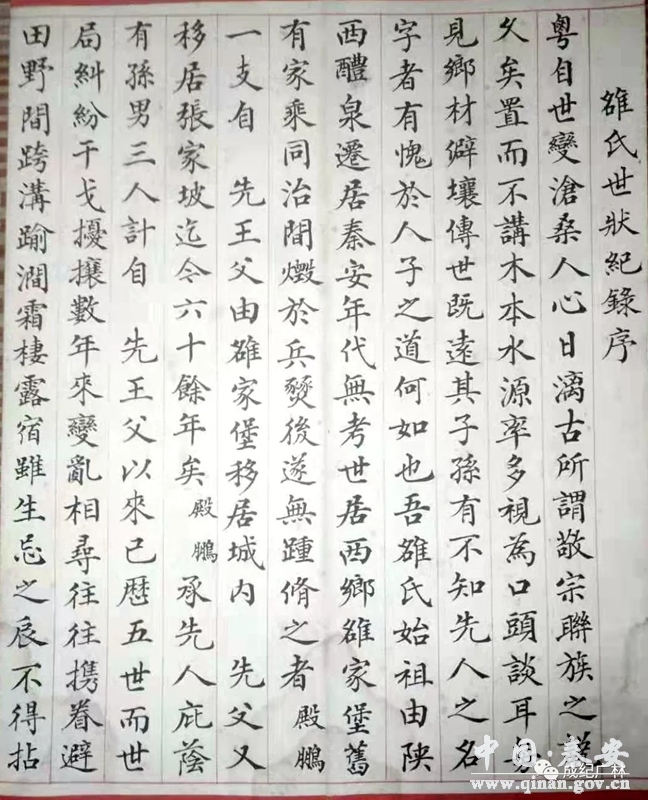 雒氏世狀紀錄序
粵自世變滄桑人心日漓古所謂敬宗聯族之
久矣置而不講木本水源率多視為口頭談耳每
見鄉材僻壤傳世既遠其子孫有不知先人之名
字者有愧於人子之道何如也吾雒氏始祖由陝
西醴泉遷居秦安年代無考世居西鄉雒家堡舊
有家乘同治間燬於兵燹後遂無踵脩之者殿鵬
一支自 先王父由雒家堡移居城内 先父又
移居張家坡迄今六十餘年矣殿鵬承先人庇蔭
有孫男三人計自 先王父以來已歷五世而世
局糾紛干戈擾攘數年來變亂相尋往往携眷避
田野間跨溝踰澗霜棲露宿雖生忌之辰不得拈
中国·秦安
成纪广林
www.qinan.gov.cn